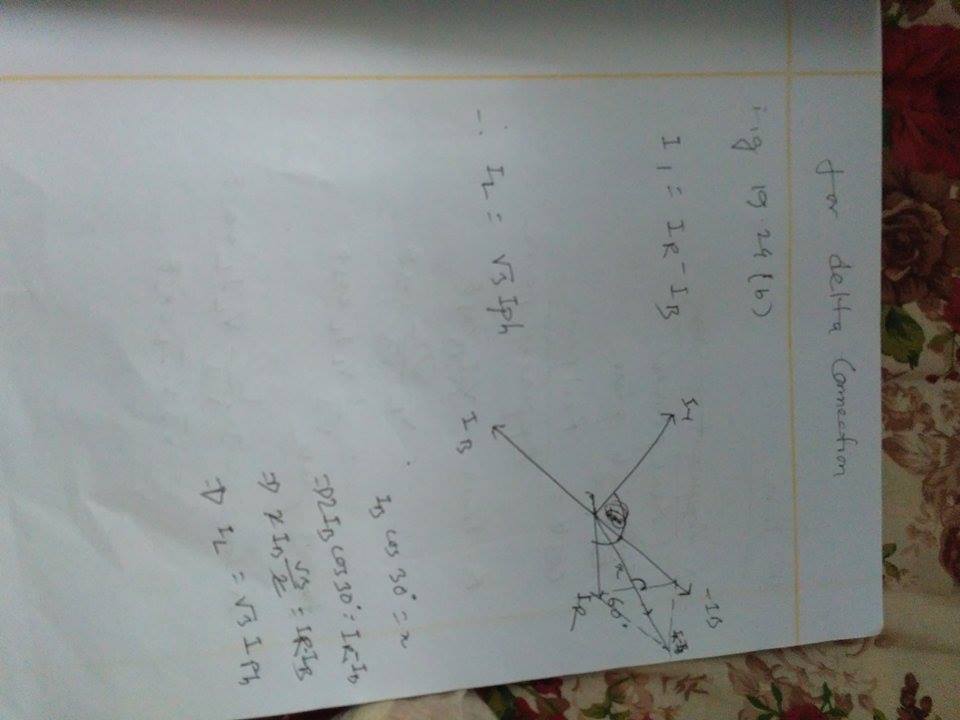 for delta Connection
Fig 19.24 (b)
I₁ = IR - IB
-IB
IR-IB
x
60°
IR
IB
∴ IL = √3 Iph
IB cos 30° = x
⇒ 2IB cos 30° = IR-IB
⇒ 2 IB √3/2 = IR-IB
⇒ IL = √3 I Ph